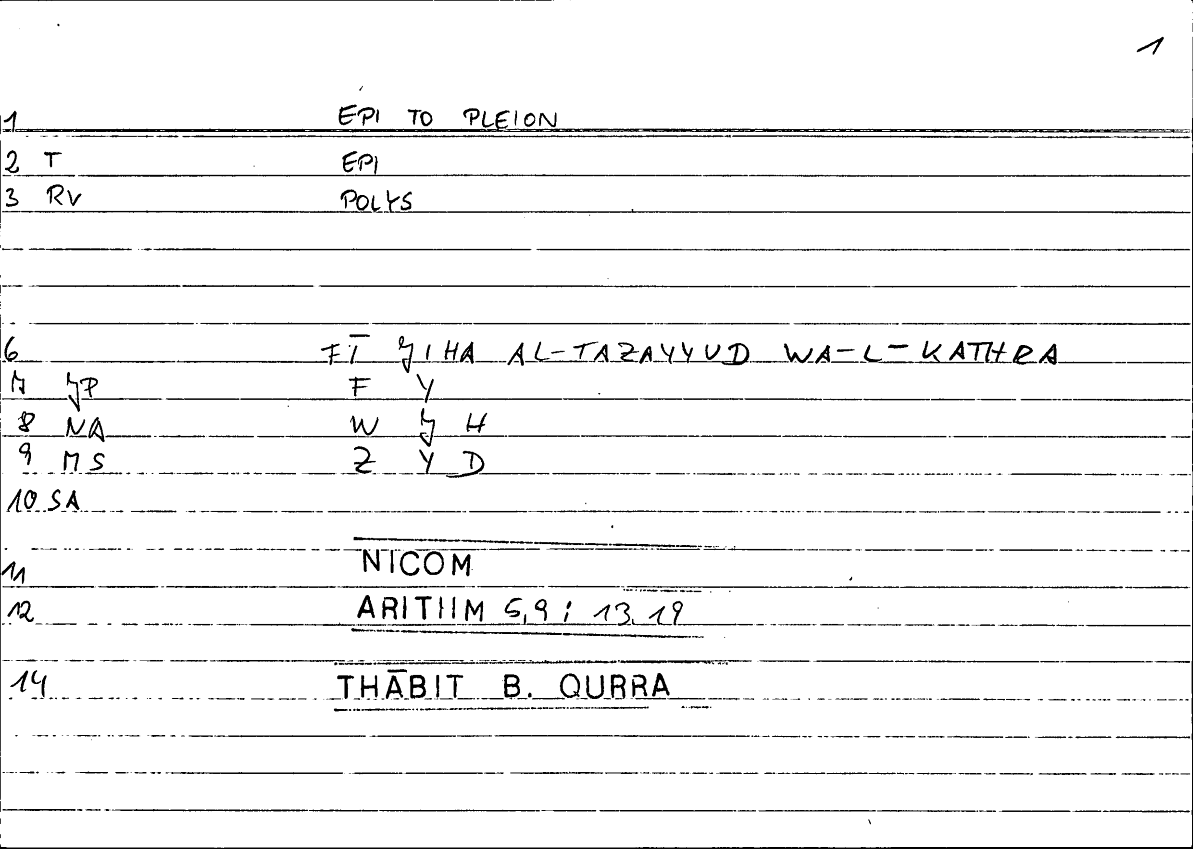 1
1 EPI TO PLEION
2 T EPI
3 RV POLYS
6 FĪ JIHA AL-TAZAYYUD WA-L-KATHRA
7 JP F Y
8 NA W J H
9 MS Z Y D
10 SA
11 NICOM
12 ARITHM 5,9 ; 13,19
14 THĀBIT B. QURRA